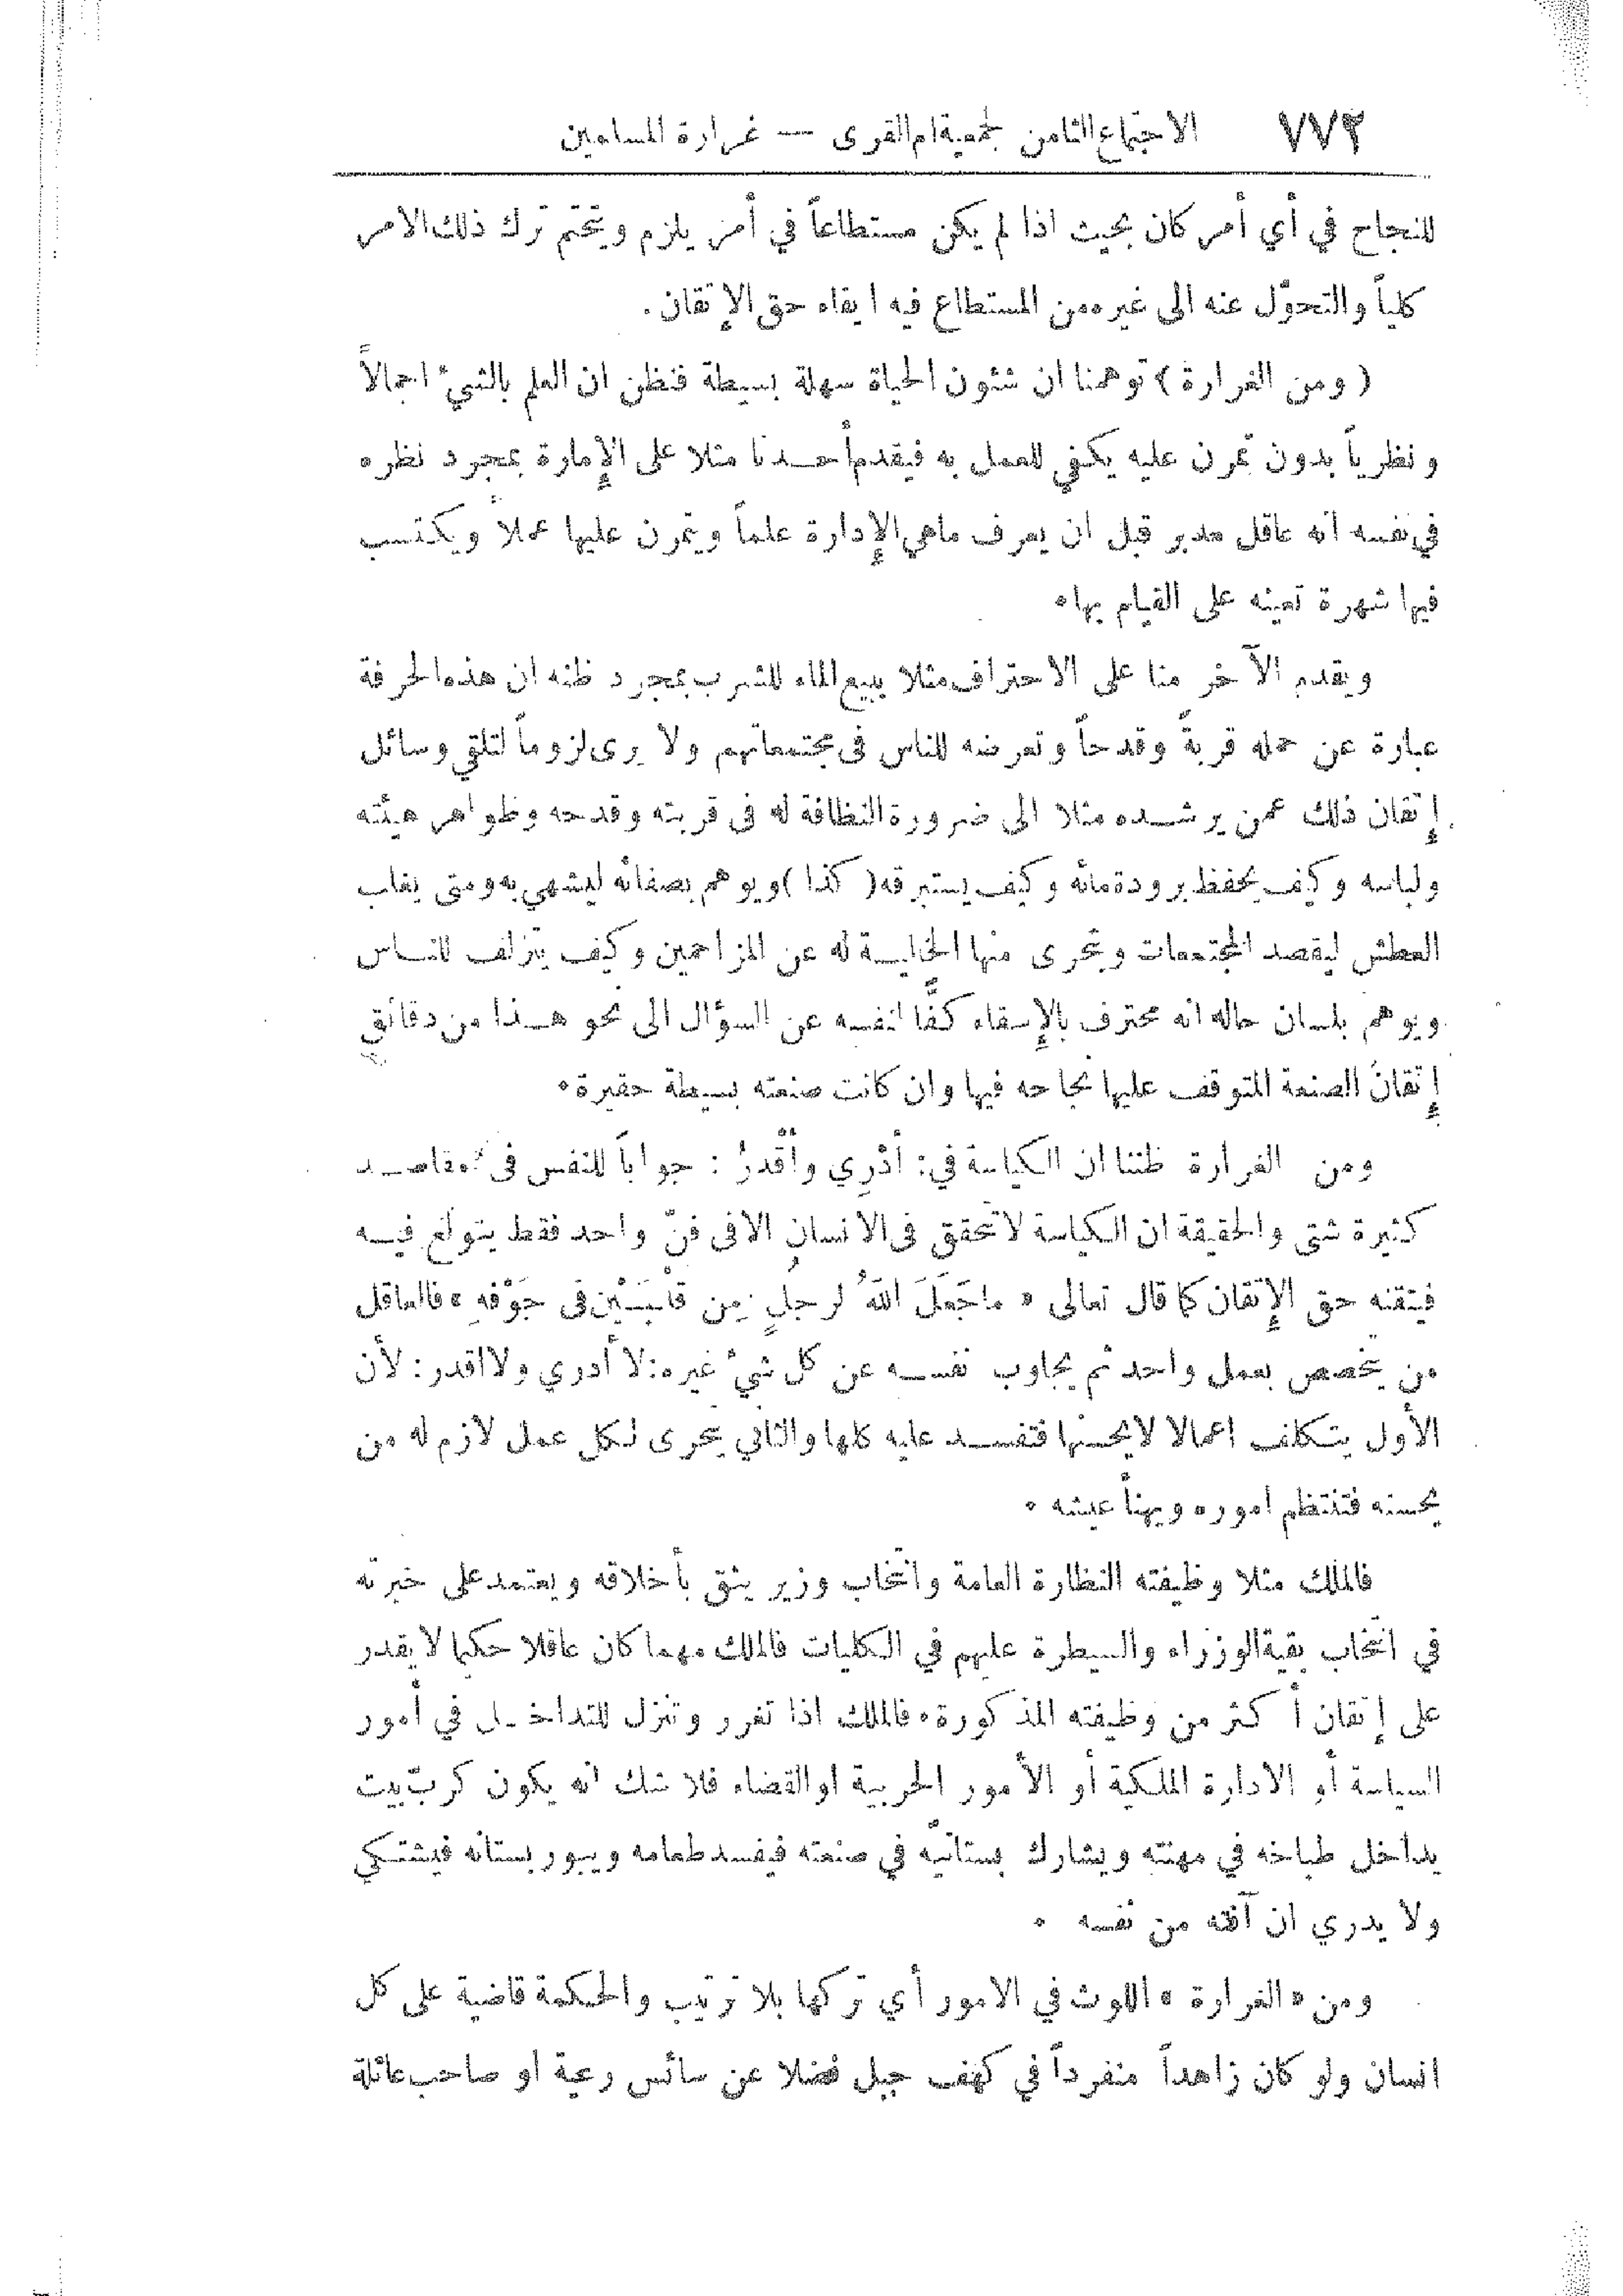 ٧٧٢ الاجتماع الثامن لجمعية ام القرى — غرارة المسلمين
للنجاح في أي أمر كان بحيث اذا لم يكن مستطاعاً في أمر يلزم ويتحتم ترك ذلك الامر
كلياً والتحوّل عنه الى غيره من المستطاع فيه ايفاء حق الإتقان .
( ومن الغرارة ) توهمنا ان شئون الحياة سهلة بسيطة فنظن ان العلم بالشيء اجمالاً
ونظرياً بدون تمرن عليه يكفي للعمل به فيقدم أحدنا مثلا على الإمارة بمجرد نظره
في نفسه انه عاقل مدبر قبل ان يعرف ماهي الإدارة علماً ويتمرن عليها عملاً ويكتسب
فيها شهرة تعينه على القيام بها ٠
ويقدم الآخر منا على الاحتراف مثلا ببيع الماء للشرب بمجرد ظنه ان هذه الحرفة
عبارة عن حمله قربةً وقدحاً وتعرضه للناس في مجتمعاتهم ولا يرى لزوماً لتلقي وسائل
إتقان ذلك عمن يرشده مثلا الى ضرورة النظافة له في قربته وقدحه وظواهر هيئته
ولباسه وكيف يحفظ برودة مائه وكيف يستبرقه ( كذا ) ويوهم بصفائه ليشهي به ومتى يغلب
العطش ليقصد المجتمعات ويتحرى منها الخالية له عن المزاحمين وكيف يتزلف للناس
ويوهم بلسان حاله انه محترف بالإسقاء كفًّا لنفسه عن السؤال الى نحو هذا من دقائق
إتقان الصنعة المتوقف عليها نجاحه فيها وان كانت صنعته بسيطة حقيرة ٠
ومن الغرارة ظننا ان الكياسة في : أدْرِي وأقْدرُ : جواباً للنفس في مقاصد
كثيرة شتى والحقيقة ان الكياسة لا تتحقق في الانسان الا في فنّ واحد فقط يتولع فيه
فيتقنه حق الإتقان كما قال تعالى « ماجَعَلَ اللهُ لرجلٍ مِن قَلْبَيْنِ في جَوْفهِ » فالعاقل
من يتخصص بعمل واحد ثم يجاوب نفسه عن كل شيء غيره : لا أدري ولا اقدر : لأن
الأول يتكلف اعمالا لايحسنها فتفسد عليه كلها والثاني يتحرى لكل عمل لازم له من
يحسنه فتنتظم اموره ويهنأ عيشه ٠
فالملك مثلا وظيفته النظارة العامة وانتخاب وزير يثق بأخلاقه ويعتمد على خبرته
في انتخاب بقية الوزراء والسيطرة عليهم في الكليات فالملك مهما كان عاقلا حكيما لا يقدر
على إتقان أكثر من وظيفته المذكورة ٠ فالملك اذا تغرر وتنزل للتداخل في أمور
السياسة أو الادارة الملكية أو الأمور الحربية او القضاء فلا شك انه يكون كربّ بيت
يداخل طباخه في مهنته ويشارك بستانيّه في صنعته فيفسد طعامه ويبور بستانه فيشتكي
ولا يدري ان آفته من نفسه ٠
ومن « الغرارة » اللوث في الامور أي تركها بلا ترتيب والحكمة قاضية على كل
انسان ولو كان زاهداً منفرداً في كهف جبل فضلا عن سائس رعية او صاحب عائلة